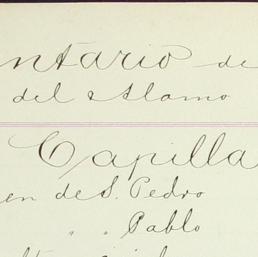 ntario de
del Alamo
Capilla
en de S. Pedro
" " Pablo